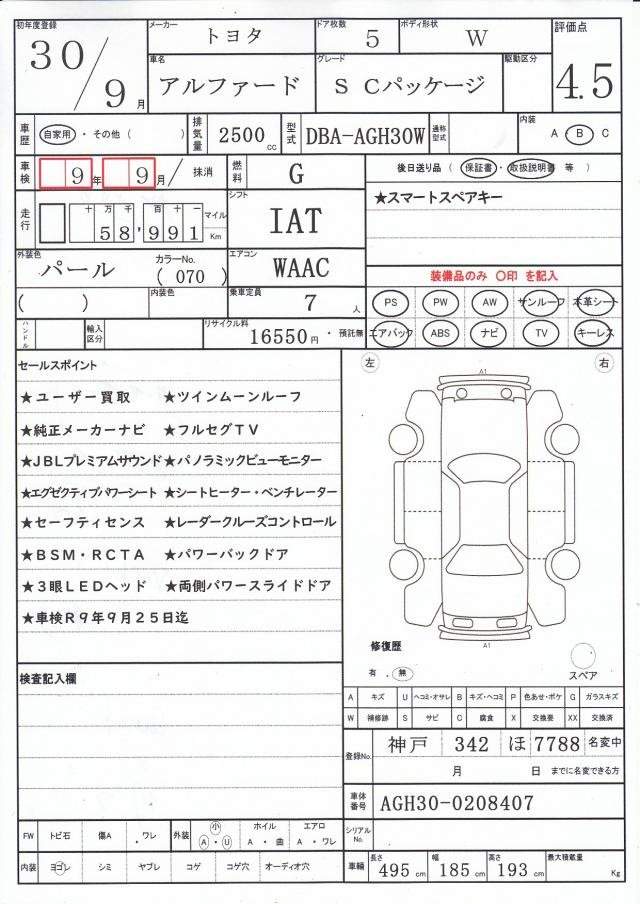 初年度登録 30/9月
メーカー トヨタ
ドア枚数 5
ボディ形状 W
評価点 4.5
車名 アルファード
グレード S Cパッケージ
駆動区分
車歴 自家用・その他( )
排気量 2500cc
型式 DBA-AGH30W
通称型式
内装 A B C
車検 9年9月/抹消
燃料 G
後日送り品(保証書・取扱説明書 等)
★スマートスペアキー
走行 十万千百十一
58,991 マイル Km
シフト IAT
外装色 パール
カラーNo. (070)
エアコン WAAC
装備品のみ 〇印 を記入
( )
内装色
乗車定員 7人
PS PW AW サンルーフ 本革シート
エアバック ABS ナビ TV キーレス
ハンドル
輸入区分
リサイクル料 16550円・預託無
セールスポイント
★ユーザー買取 ★ツインムーンルーフ
★純正メーカーナビ ★フルセグTV
★JBLプレミアムサウンド ★パノラミックビューモニター
★エグゼクティブパワーシート ★シートヒーター・ベンチレーター
★セーフティセンス ★レーダークルーズコントロール
★BSM・RCTA ★パワーバックドア
★3眼LEDヘッド ★両側パワースライドドア
★車検R9年9月25日迄
左 右
A1
A1
修復歴
有.無
スペア
検査記入欄
A キズ U ヘコミ・オサレ B キズ・ヘコミ P 色あせ・ボケ G ガラスキズ
W 補修跡 S サビ C 腐食 X 交換要 XX 交換済
登録No. 神戸 342 ほ 7788 名変中
月 日 までに名変できる方
車体番号 AGH30-0208407
シリアルNo.
FW トビ石 傷A ・ワレ
外装 小 A・U
ホイル A・曲
エアロ A・ワレ
内装 ヨゴレ シミ ヤブレ コゲ コゲ穴 オーディオ穴
車輛 長さ 495cm 幅 185cm 高さ 193cm 最大積載量 Kg